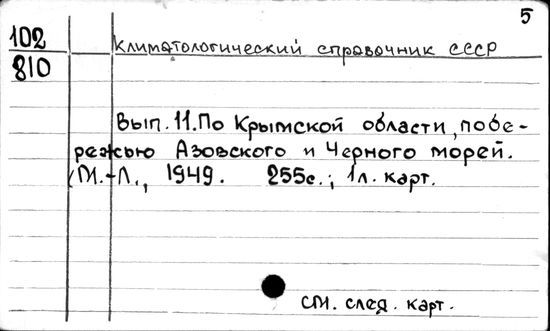 5
102
810
климатологический справочник СССР
Вып. 11. По Крымской области, побе-
режью Азовского и Черного морей.
М.-Л., 1949. 255с.; 1л. карт.
см. след. карт.